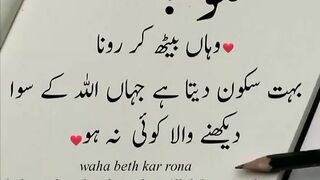 وہاں بیٹھ کر رونا
بہت سکون دیتا ہے جہاں اللہ کے سوا
دیکھنے والا کوئی نہ ہو
waha beth kar rona